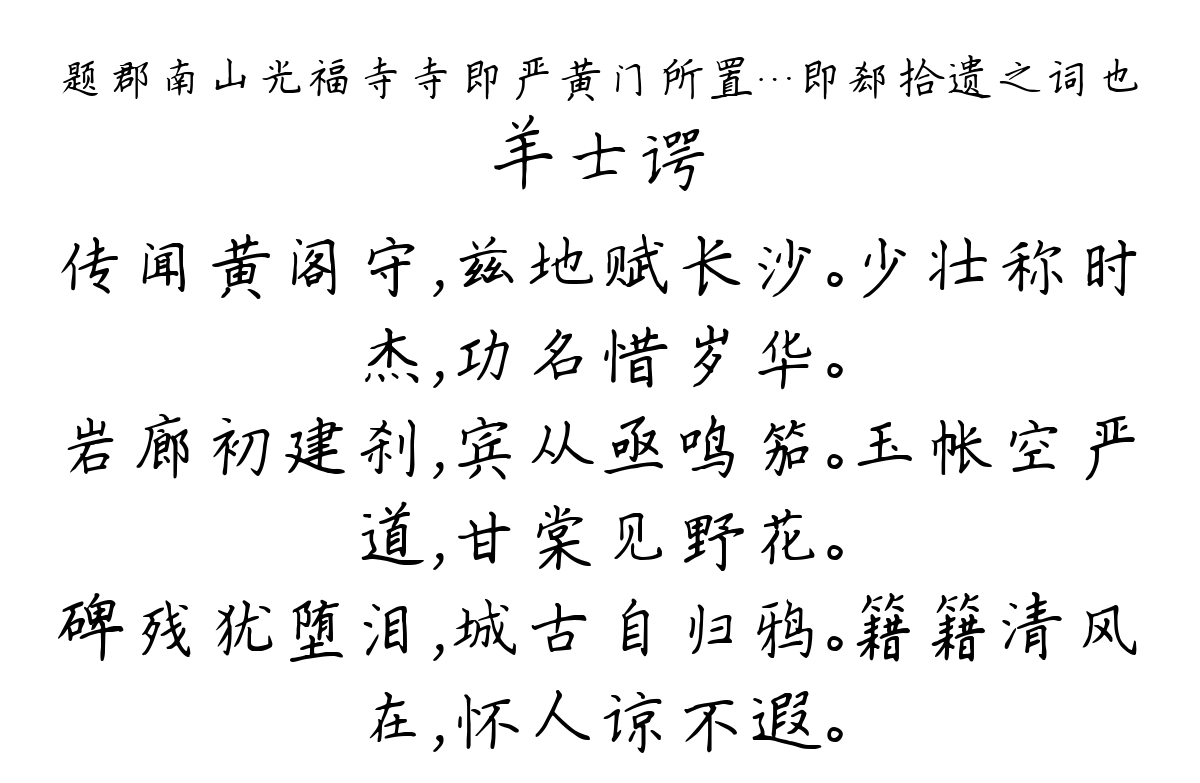 题郡南山光福寺寺即严黄门所置…即郄拾遗之词也
羊士谔
传闻黄阁守,兹地赋长沙。少壮称时
杰,功名惜岁华。
岩廊初建刹,宾从亟鸣笳。玉帐空严
道,甘棠见野花。
碑残犹堕泪,城古自归鸦。籍籍清风
在,怀人谅不遐。